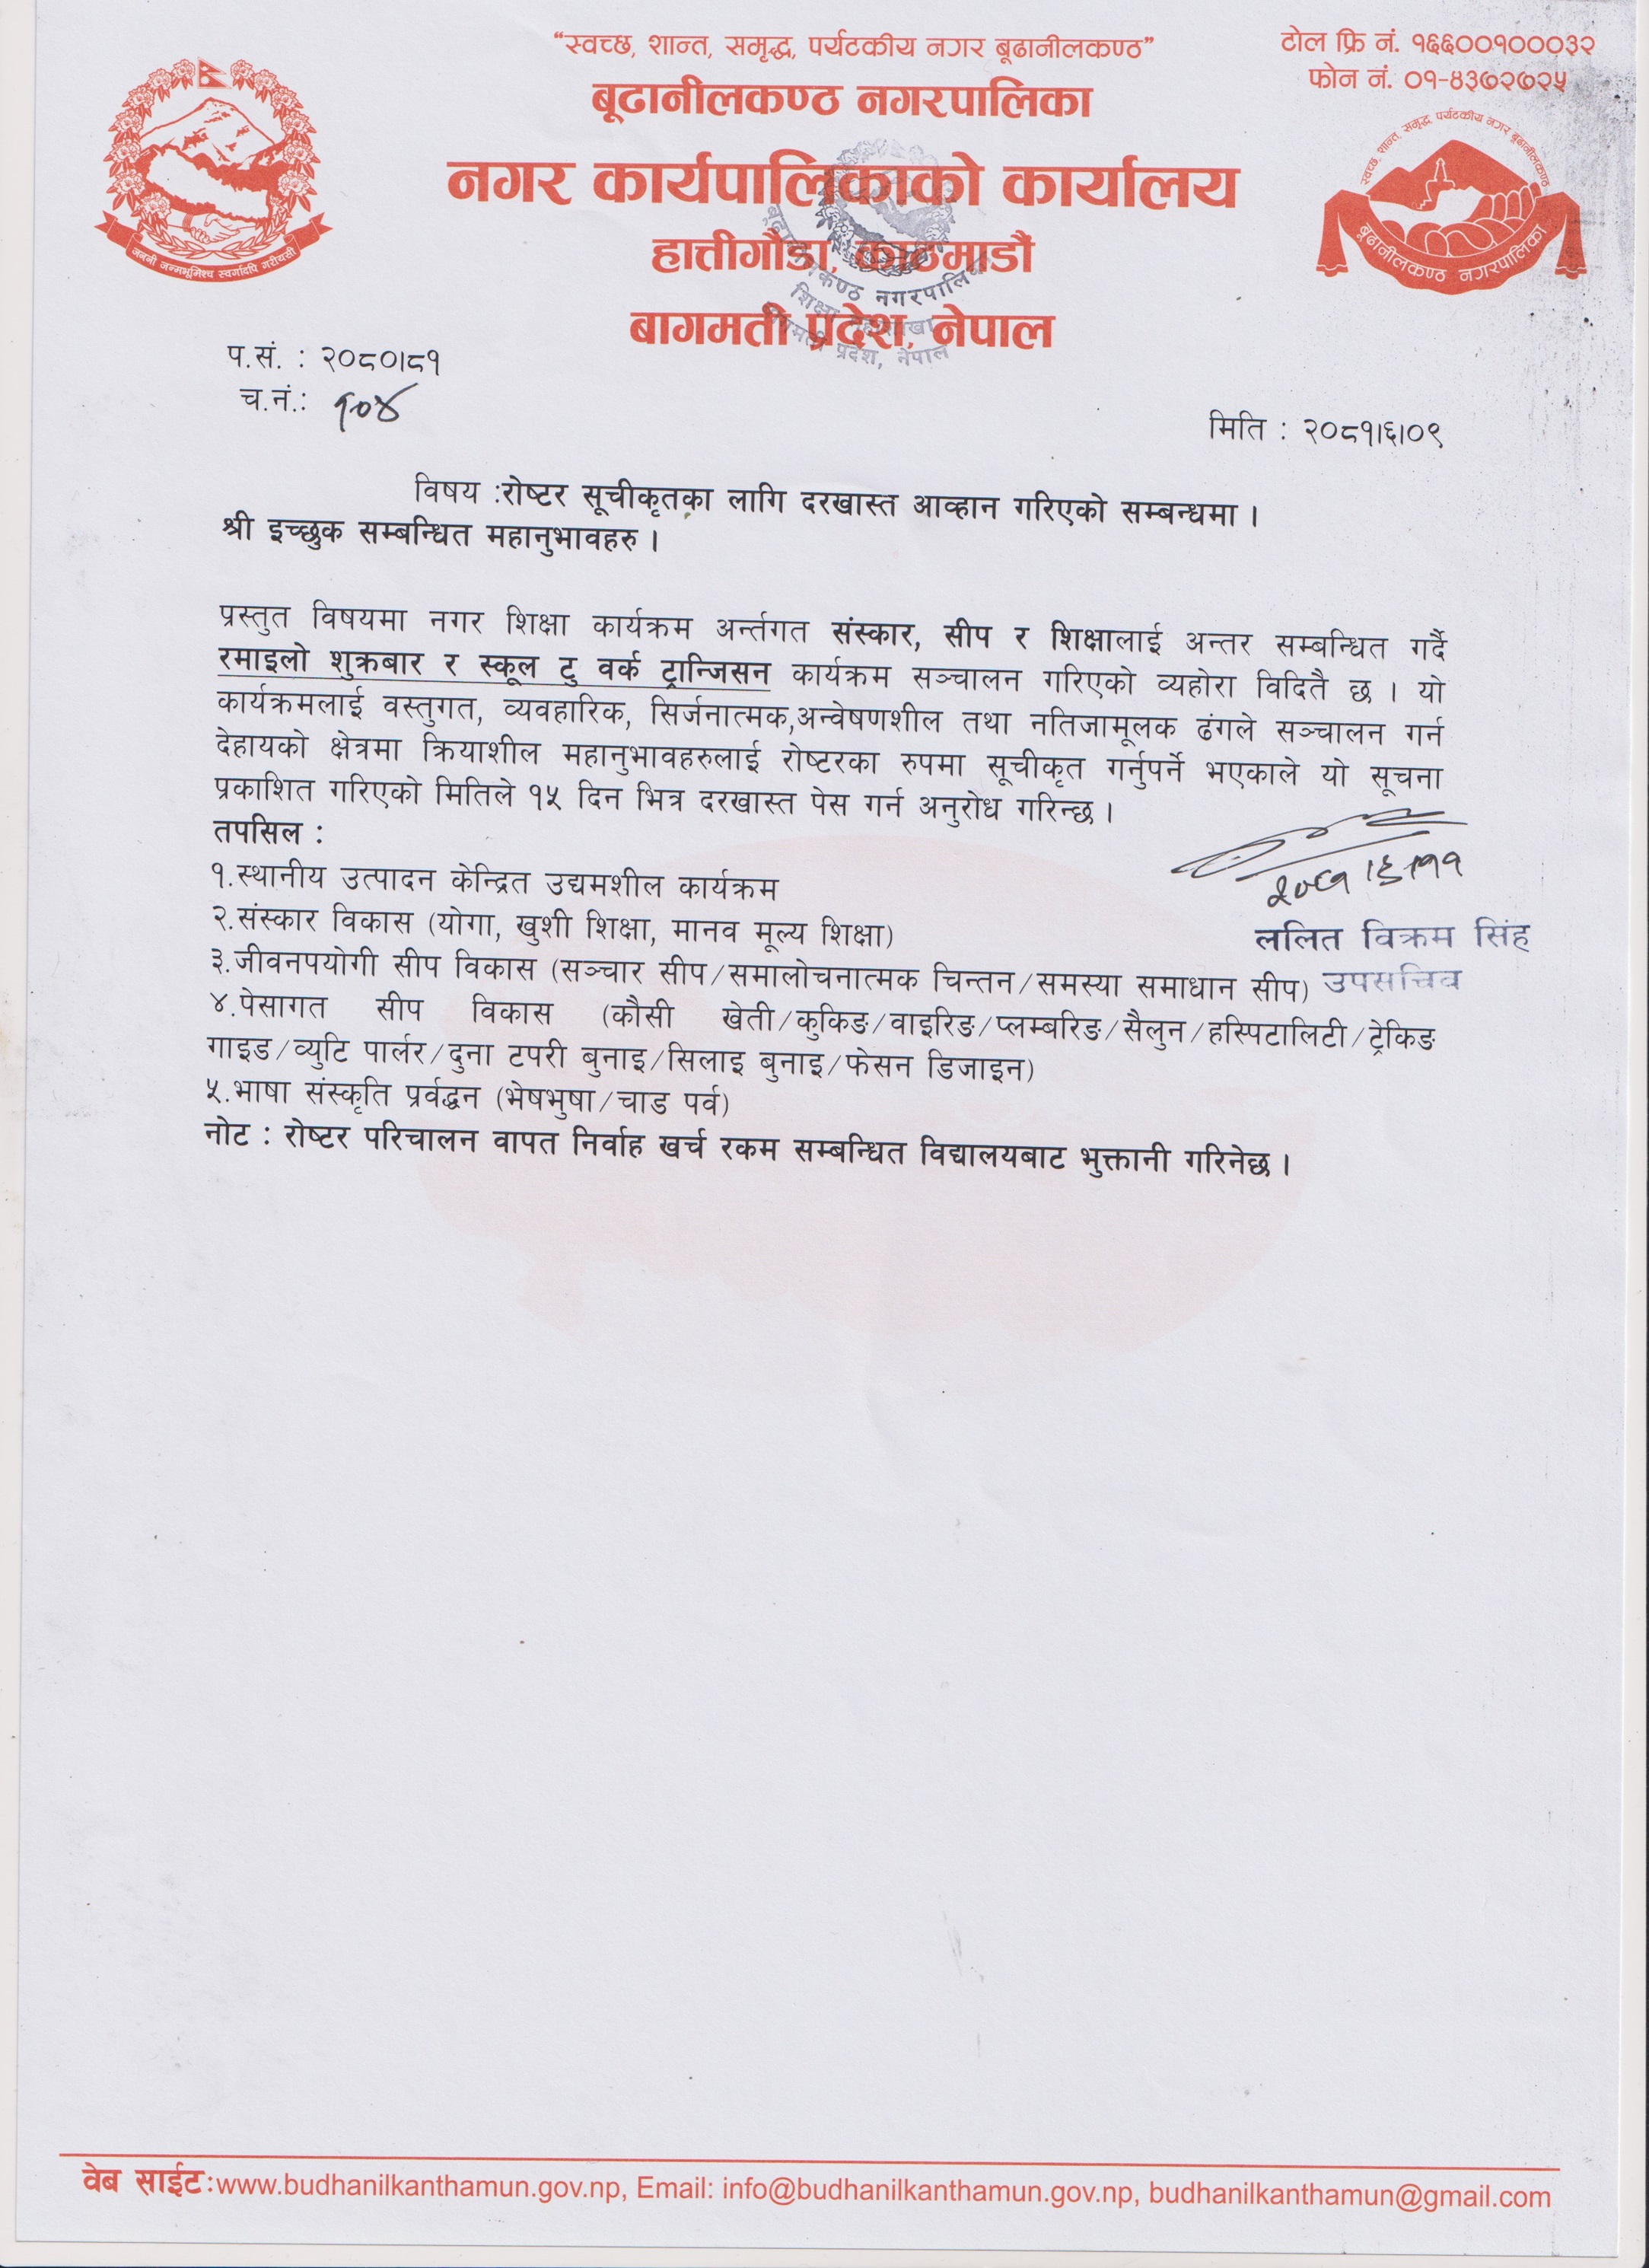 “स्वच्छ, शान्त, समृद्ध, पर्यटकीय नगर बूढानीलकण्ठ”
टोल फ्रि नं. १६६००१०००३२
फोन नं. ०१-४३७२७२५
बूढानीलकण्ठ नगरपालिका
नगर कार्यपालिकाको कार्यालय
हात्तीगौडा, काठमाडौं
बागमती प्रदेश, नेपाल
जननी जन्मभूमिश्च स्वर्गादपि गरीयसी
स्वच्छ, शान्त, समृद्ध, पर्यटकीय नगर बूढानीलकण्ठ
बूढानीलकण्ठ नगरपालिका
नगरपालिका
शिक्षा
प्रदेश, नेपाल
प.सं. : २०८०।८१
च.नं.: १०४
मिति : २०८१।६।०९
विषय :रोष्टर सूचीकृतका लागि दरखास्त आव्हान गरिएको सम्बन्धमा ।
श्री इच्छुक सम्बन्धित महानुभावहरु ।
प्रस्तुत विषयमा नगर शिक्षा कार्यक्रम अर्न्तगत संस्कार, सीप र शिक्षालाई अन्तर सम्बन्धित गर्दै
रमाइलो शुक्रबार र स्कूल टु वर्क ट्रान्जिसन कार्यक्रम सञ्चालन गरिएको व्यहोरा विदितै छ । यो
कार्यक्रमलाई वस्तुगत, व्यवहारिक, सिर्जनात्मक,अन्वेषणशील तथा नतिजामूलक ढंगले सञ्चालन गर्न
देहायको क्षेत्रमा क्रियाशील महानुभावहरुलाई रोष्टरका रुपमा सूचीकृत गर्नुपर्ने भएकाले यो सूचना
प्रकाशित गरिएको मितिले १५ दिन भित्र दरखास्त पेस गर्न अनुरोध गरिन्छ ।
तपसिल :
१.स्थानीय उत्पादन केन्द्रित उद्यमशील कार्यक्रम
२०८१।६।११
२.संस्कार विकास (योगा, खुशी शिक्षा, मानव मूल्य शिक्षा)
ललित विक्रम सिंह
३.जीवनपयोगी सीप विकास (सञ्चार सीप/समालोचनात्मक चिन्तन/समस्या समाधान सीप)
उपसचिव
४.पेसागत सीप विकास (कौसी खेती/कुकिङ/वाइरिङ/प्लम्बरिङ/सैलुन/हस्पिटालिटी/ट्रेकिङ
गाइड/व्युटि पार्लर/दुना टपरी बुनाइ/सिलाइ बुनाइ/फेसन डिजाइन)
५.भाषा संस्कृति प्रर्वद्धन (भेषभुषा/चाड पर्व)
नोट : रोष्टर परिचालन वापत निर्वाह खर्च रकम सम्बन्धित विद्यालयबाट भुक्तानी गरिनेछ ।
वेब साईट:www.budhanilkanthamun.gov.np, Email: info@budhanilkanthamun.gov.np, budhanilkanthamun@gmail.com